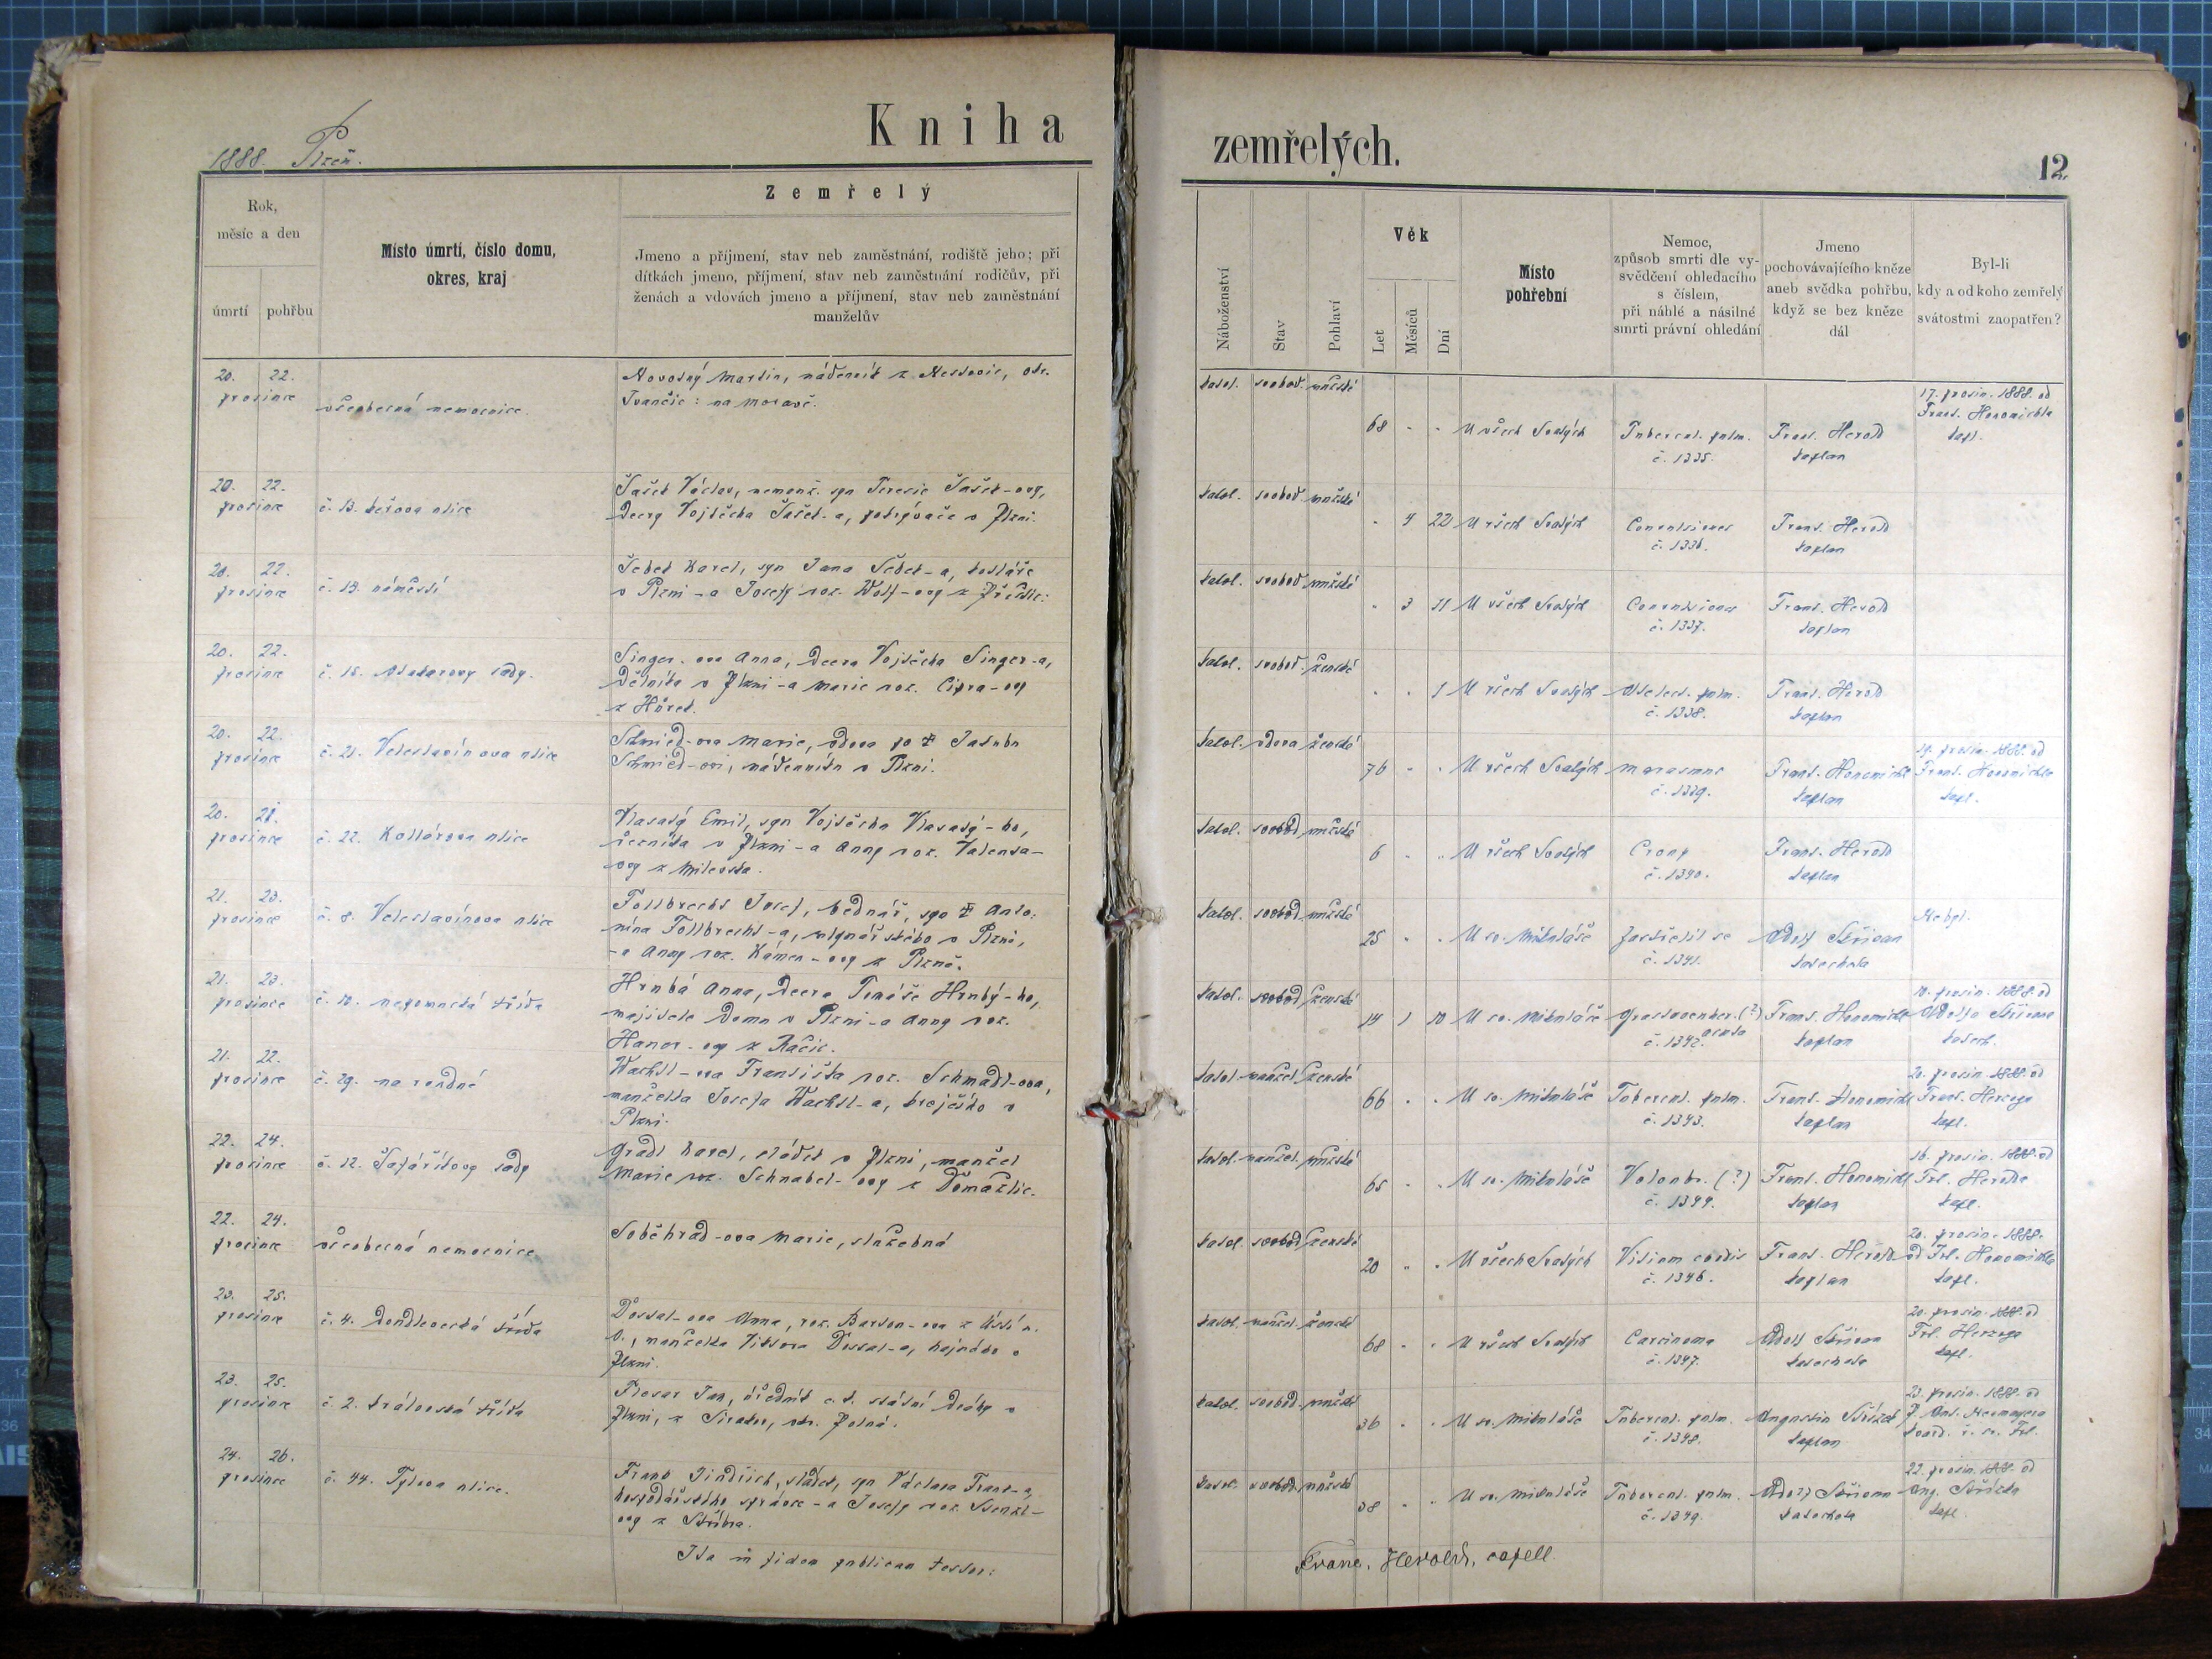 1888. Plzeň.
Kniha
zemřelých.
12
Rok,
měsíc a den
úmrtí
pohřbu
Místo úmrtí, číslo domu,
okres, kraj
Zemřelý
Jmeno a příjmení, stav neb zaměstnání, rodiště jeho; při
dítkách jmeno, příjmení, stav neb zaměstnání rodičův, při
ženách a vdovách jmeno a příjmení, stav neb zaměstnání
manželův
Náboženství
Stav
Pohlaví
Věk
Let
Měsíců
Dní
Místo
pohřební
Nemoc,
způsob smrti dle vy-
svědčení ohledacího
s číslem,
při náhlé a násilné
smrti právní ohledání
Jmeno
pochovávajícího kněze
aneb svědka pohřbu,
když se bez kněze
dál
Byl-li
kdy a od koho zemřelý
svátostmi zaopatřen?
20. 22.
prosince
všeobecná nemocnice.
Novotný Martin, nádenník z
Ivančic: na Moravě.
katol. svobod. mužské
68 " " U všech Svatých
Tubercul. pulm.
č. 1335.
Frant. Herold
kaplan
17. prosin. 1888. od
Frant. Honomichla
kapl.
20. 22.
prosince
č. 13. ulice
Šašek Václav, nemanž. syn Teresie Šašek-ovy,
dcery Vojtěcha Šašek-a, pokrývače v Plzni.
katol. svobod. mužské
" 4 22 U všech Svatých
Convulsiones
č. 1336.
Frant. Herold
kaplan
20. 22.
prosince
č. 13. náměstí
Šebek Karel, syn Jana Šebek-a, kotláře
v Plzni -a Josefy roz. Wolf-ovy z
katol. svobod. mužské
" 3 11 U všech Svatých
Convulsiones
č. 1337.
Frant. Herold
kaplan
20. 22.
prosince
č. 15. sady.
Singer-ova Anna, dcera Vojtěcha Singer-a,
dělníka v Plzni -a Marie roz. Cipra-ovy
z
katol. svobod. ženské
" " 1 U všech Svatých
Atelect. pulm.
č. 1338.
Frant. Herold
kaplan
20. 22.
prosince
č. 21. Veleslavínova ulice
Schmied-ova Marie, vdova po Jakubu
Schmied-ovi, nádenníku v Plzni.
katol. vdova ženské
76 " " U všech Svatých
Marasmus
č. 1339.
Frant. Honomichl
kaplan
prosin. 1888. od
Frant. Honomichla
kapl.
20. 21.
prosince
č. 22. Kollárova ulice
Klasatý Emil, syn Vojtěcha Klasatý-ho,
řezníka v Plzni -a Anny roz. Valenta-
ovy z
katol. svobod. mužské
6 " " U všech Svatých
Croup
č. 1340.
Frant. Herold
kaplan
21. 23.
prosince
č. 8. Veleslavínova ulice
Follbrecht Josef, bednář, syn Anto-
nína Follbrecht-a, mlynářského v Plzni,
-a Anny roz. Kámen-ovy z Plzně.
katol. svobod. mužské
25 " " U sv. Mikuláše
Zastřelil se
č. 1341.
Adolf Skřivan
katecheta
Nebyl.
21. 23.
prosince
č. 10. nepomucká třída
Hrubá Anna, dcera Tomáše Hrubý-ho,
majitele domu v Plzni -a Anny roz.
Hanor-ovy z Račic.
katol. svobod. ženské
14 1 10 U sv. Mikuláše
(?)
acuta
č. 1342.
Frant. Honomichl
kaplan
prosin. 1888. od
Adolfa Skřivana
katech.
21. 22.
prosince
č. 29. na rondné
Wachtl-ova Františka roz. Schmadl-ova,
manželka Josefa Wachtl-a, krejčího v
Plzni.
katol. manžel. ženské
66 " " U sv. Mikuláše
Tubercul. pulm.
č. 1343.
Frant. Honomichl
kaplan
20. prosin. 1888. od
Frant. Herzoga
kapl.
22. 24.
prosince
č. 12. Šafaříkovy sady
Gradl Karel, sládek v Plzni, manžel
Marie roz. Schnabel-ovy z Domažlic.
katol. manžel. mužské
65 " " U sv. Mikuláše
(?)
č. 1344.
Frant. Honomichl
kaplan
16. prosin. 1888. od
Frt. Herolda
kapl.
22. 24.
prosince
všeobecná nemocnice
Soběhrad-ova Marie, služebná
katol. svobod. ženské
20 " " U všech Svatých
Vitium cordis
č. 1346.
Frant. Herold
kaplan
20. prosin. 1888.
od Frt. Honomichla
kapl.
23. 25.
prosince
č. 4. Doudlevecká třída
Dossal-ova Anna, roz. Barton-ova z Ústí n.
O., manželka Viktora Dossal-a, hajného v
Plzni.
katol. manžel. ženské
68 " " U všech Svatých
Carcinoma
č. 1347.
Adolf Skřivan
katecheta
20. prosin. 1888. od
Frt. Herzoga
kapl.
23. 25.
prosince
č. 2. královská třída
Flesar Jan, úředník c. k. státní dráhy v
Plzni, z okr. Polná.
katol. svobod. mužské
36 " " U sv. Mikuláše
Tubercul. pulm.
č. 1348.
Augustin Skřízek
kaplan
23. prosin. 1888. od
P. Ant. Neumayera
24. 26.
prosince
č. 44. Tylova ulice.
Frank Jindřich, sládek, syn Václava Frank-a,
hospodářského správce -a Josefy roz.
ovy z Stříbra.
katol. svobod. mužské
38 " " U sv. Mikuláše
Tubercul. pulm.
č. 1349.
Adolf Skřivan
katecheta
22. prosin. 1888. od
Aug. Skřízka
kapl.
Ita in fidem publicam testor:
Franc. Herold, capell.